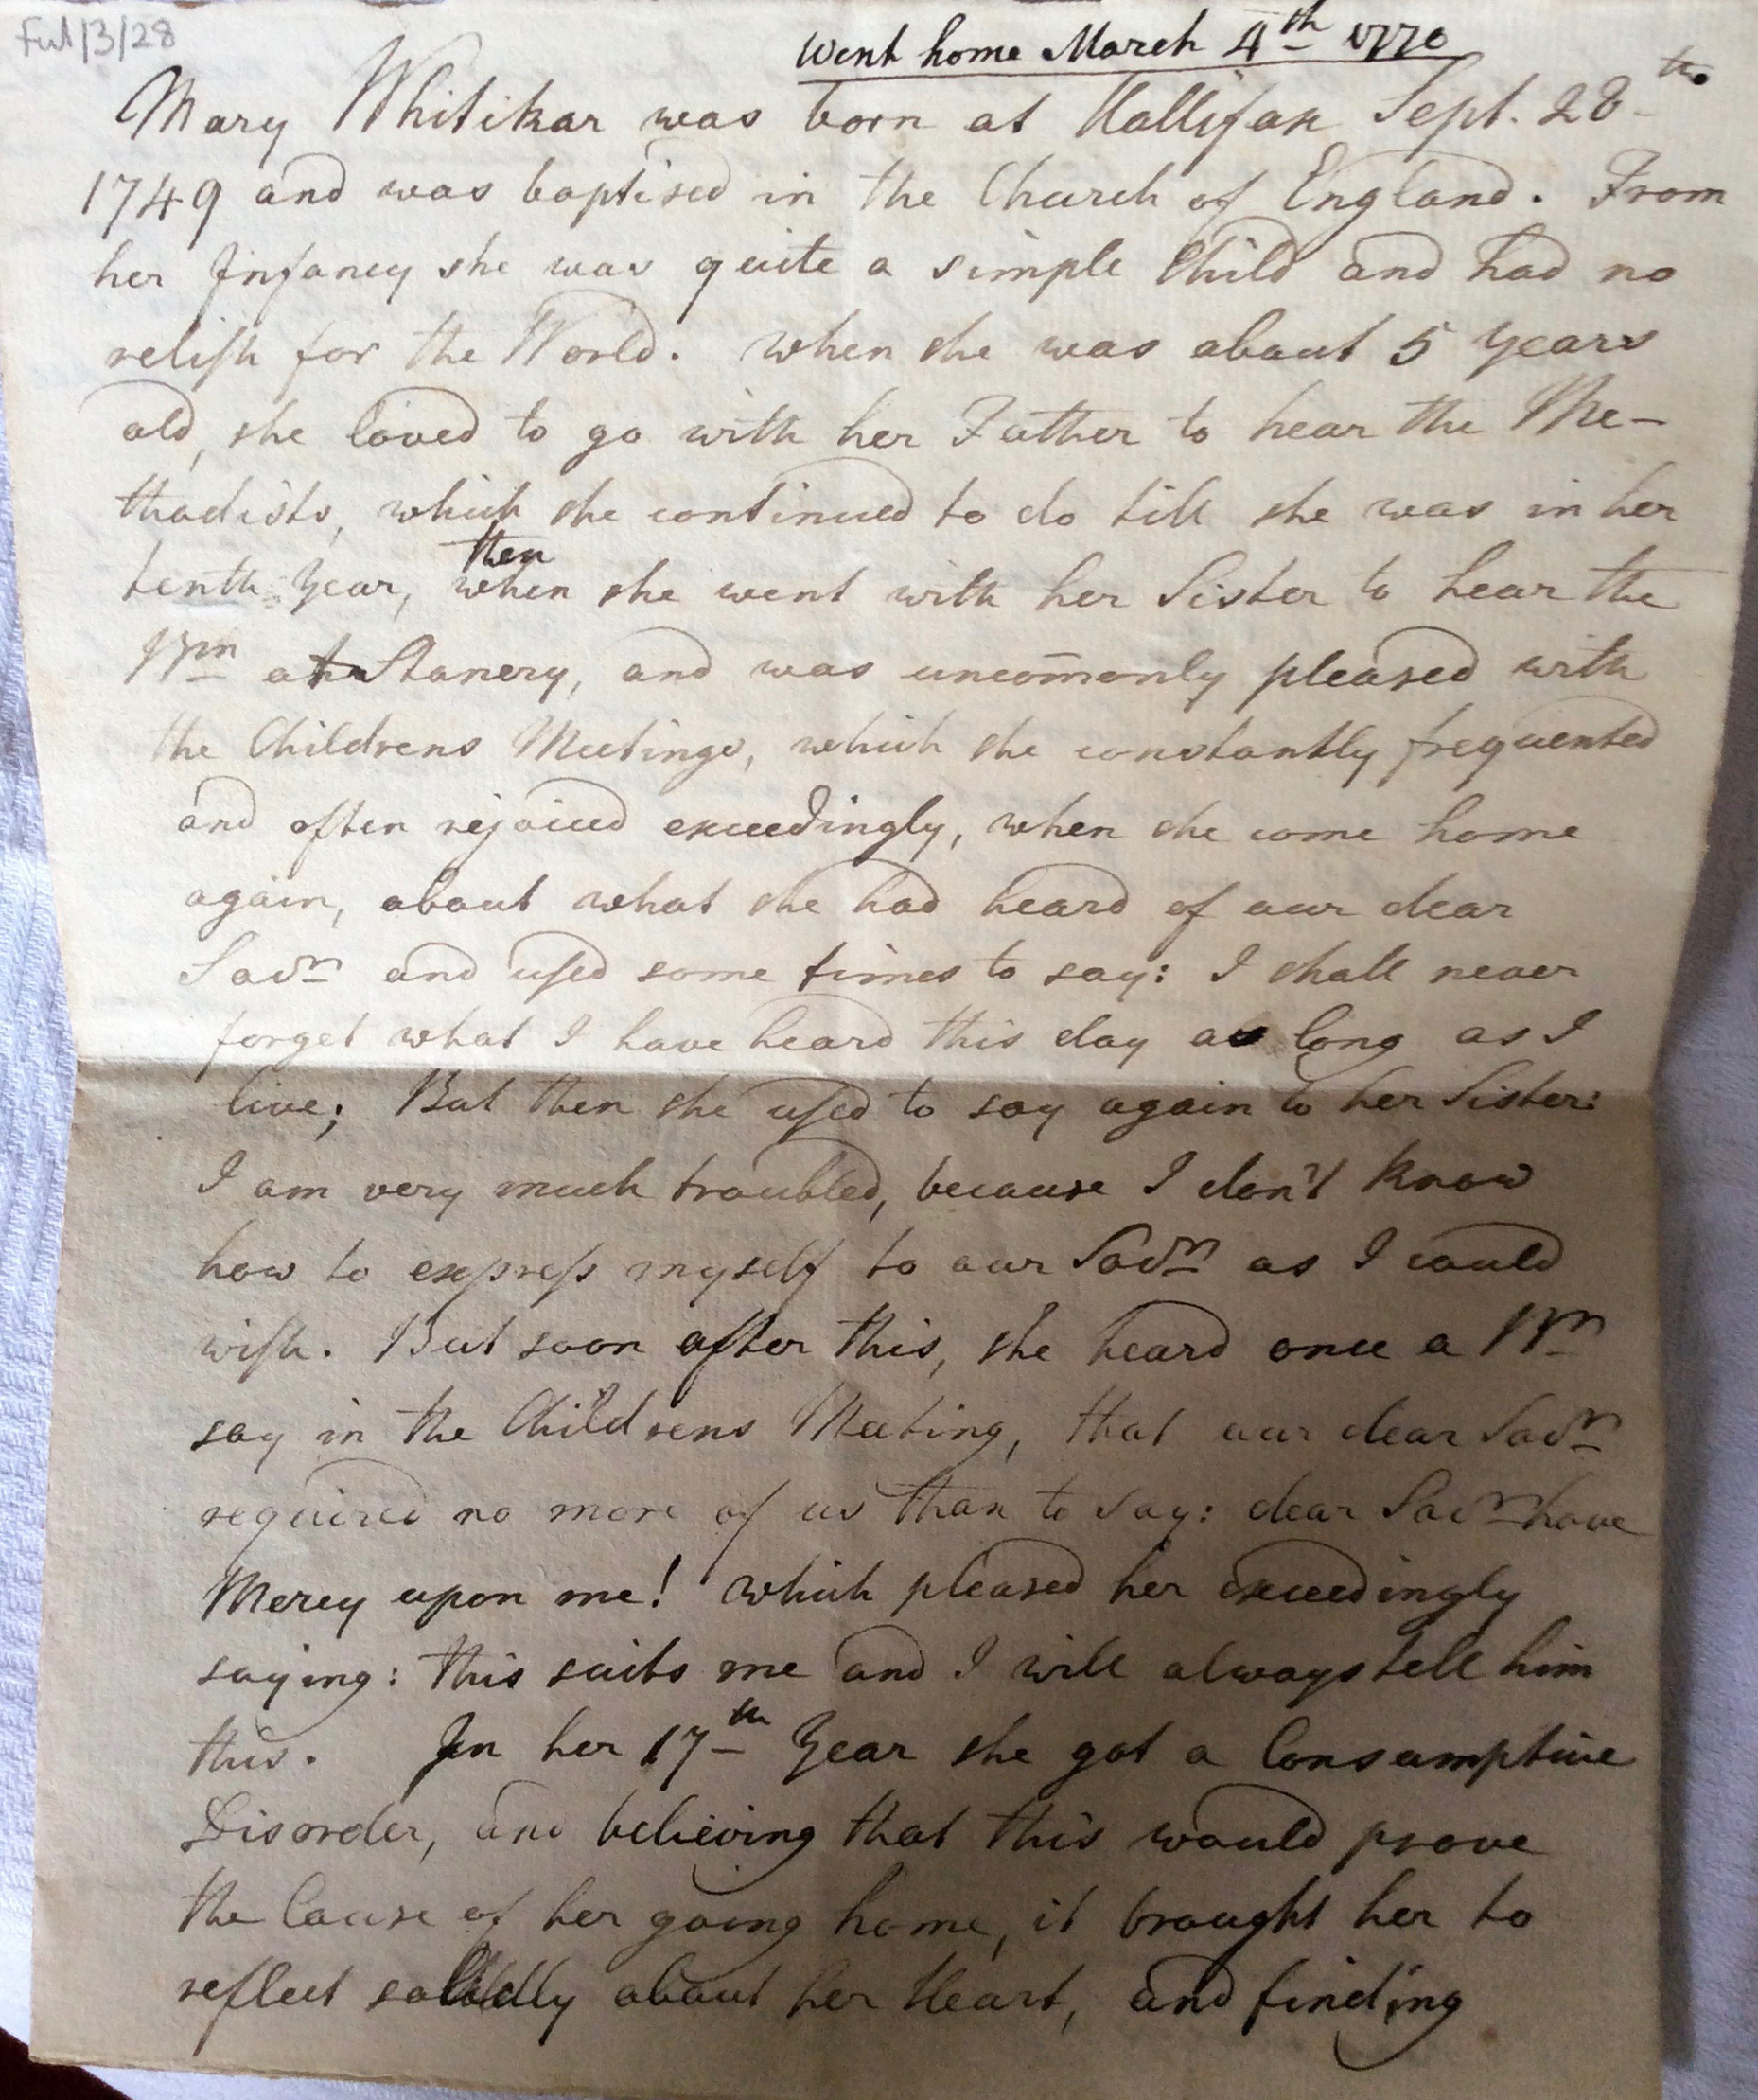 Ful/3/28
Went home March 4th 1770
Mary Whitikar was born at Hallifax Sept. 28th
1749 and was baptised in the Church of England. From
her Infancy she was quite a simple Child and had no
relish for the World. When she was about 5 years
old, she loved to go with her Father to hear the Me-
thodists, which she continued to do till she was in her
then
tenth Year, when she went with her Sister to hear the
Brn at Stanery, and was uncom̄only pleased with
the Childrens Meetings, which she constantly frequented
and often rejoiced exceedingly, when she come home
again, about what she had heard of our dear
Savr and used some times to say: I shall never
forget what I have heard this day as long as I
live; But then she used to say again to her Sister:
I am very much troubled, because I don't know
how to express myself to our Savr as I could
wish. But soon after this, she heard once a Br
say in the Childrens Meeting, that our dear Savr
required no more of us than to say: dear Savr have
Mercy upon me! which pleased her exceedingly
saying: this suits me and I will always tell him
this. In her 17th Year she got a Consumptive
Disorder, and believing that this would prove
the Cause of her going home, it brought her to
reflect solidly about her Heart, and finding